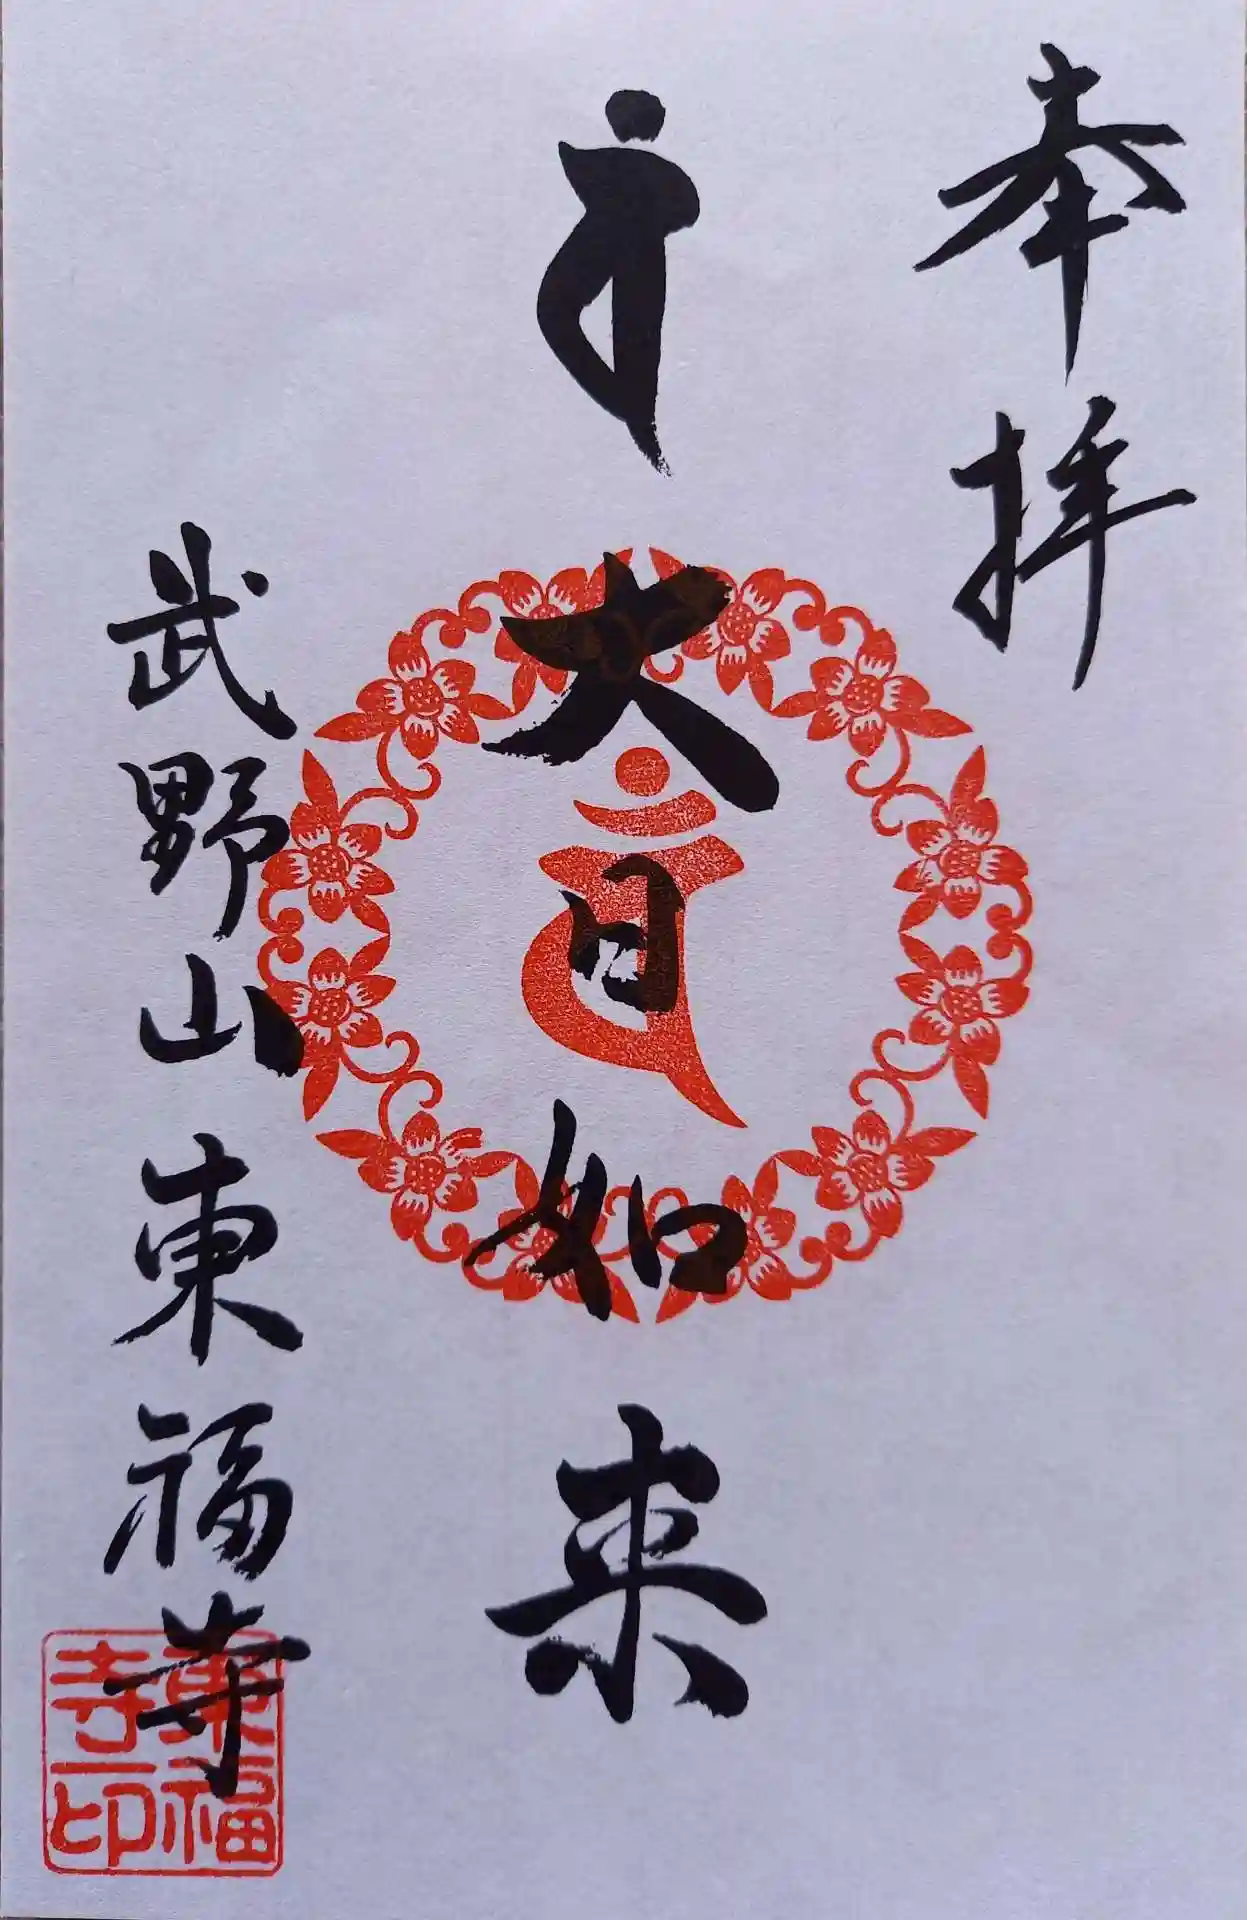 奉拝
𑖪𑖽 大日如来
武野山東福寺
東福寺印